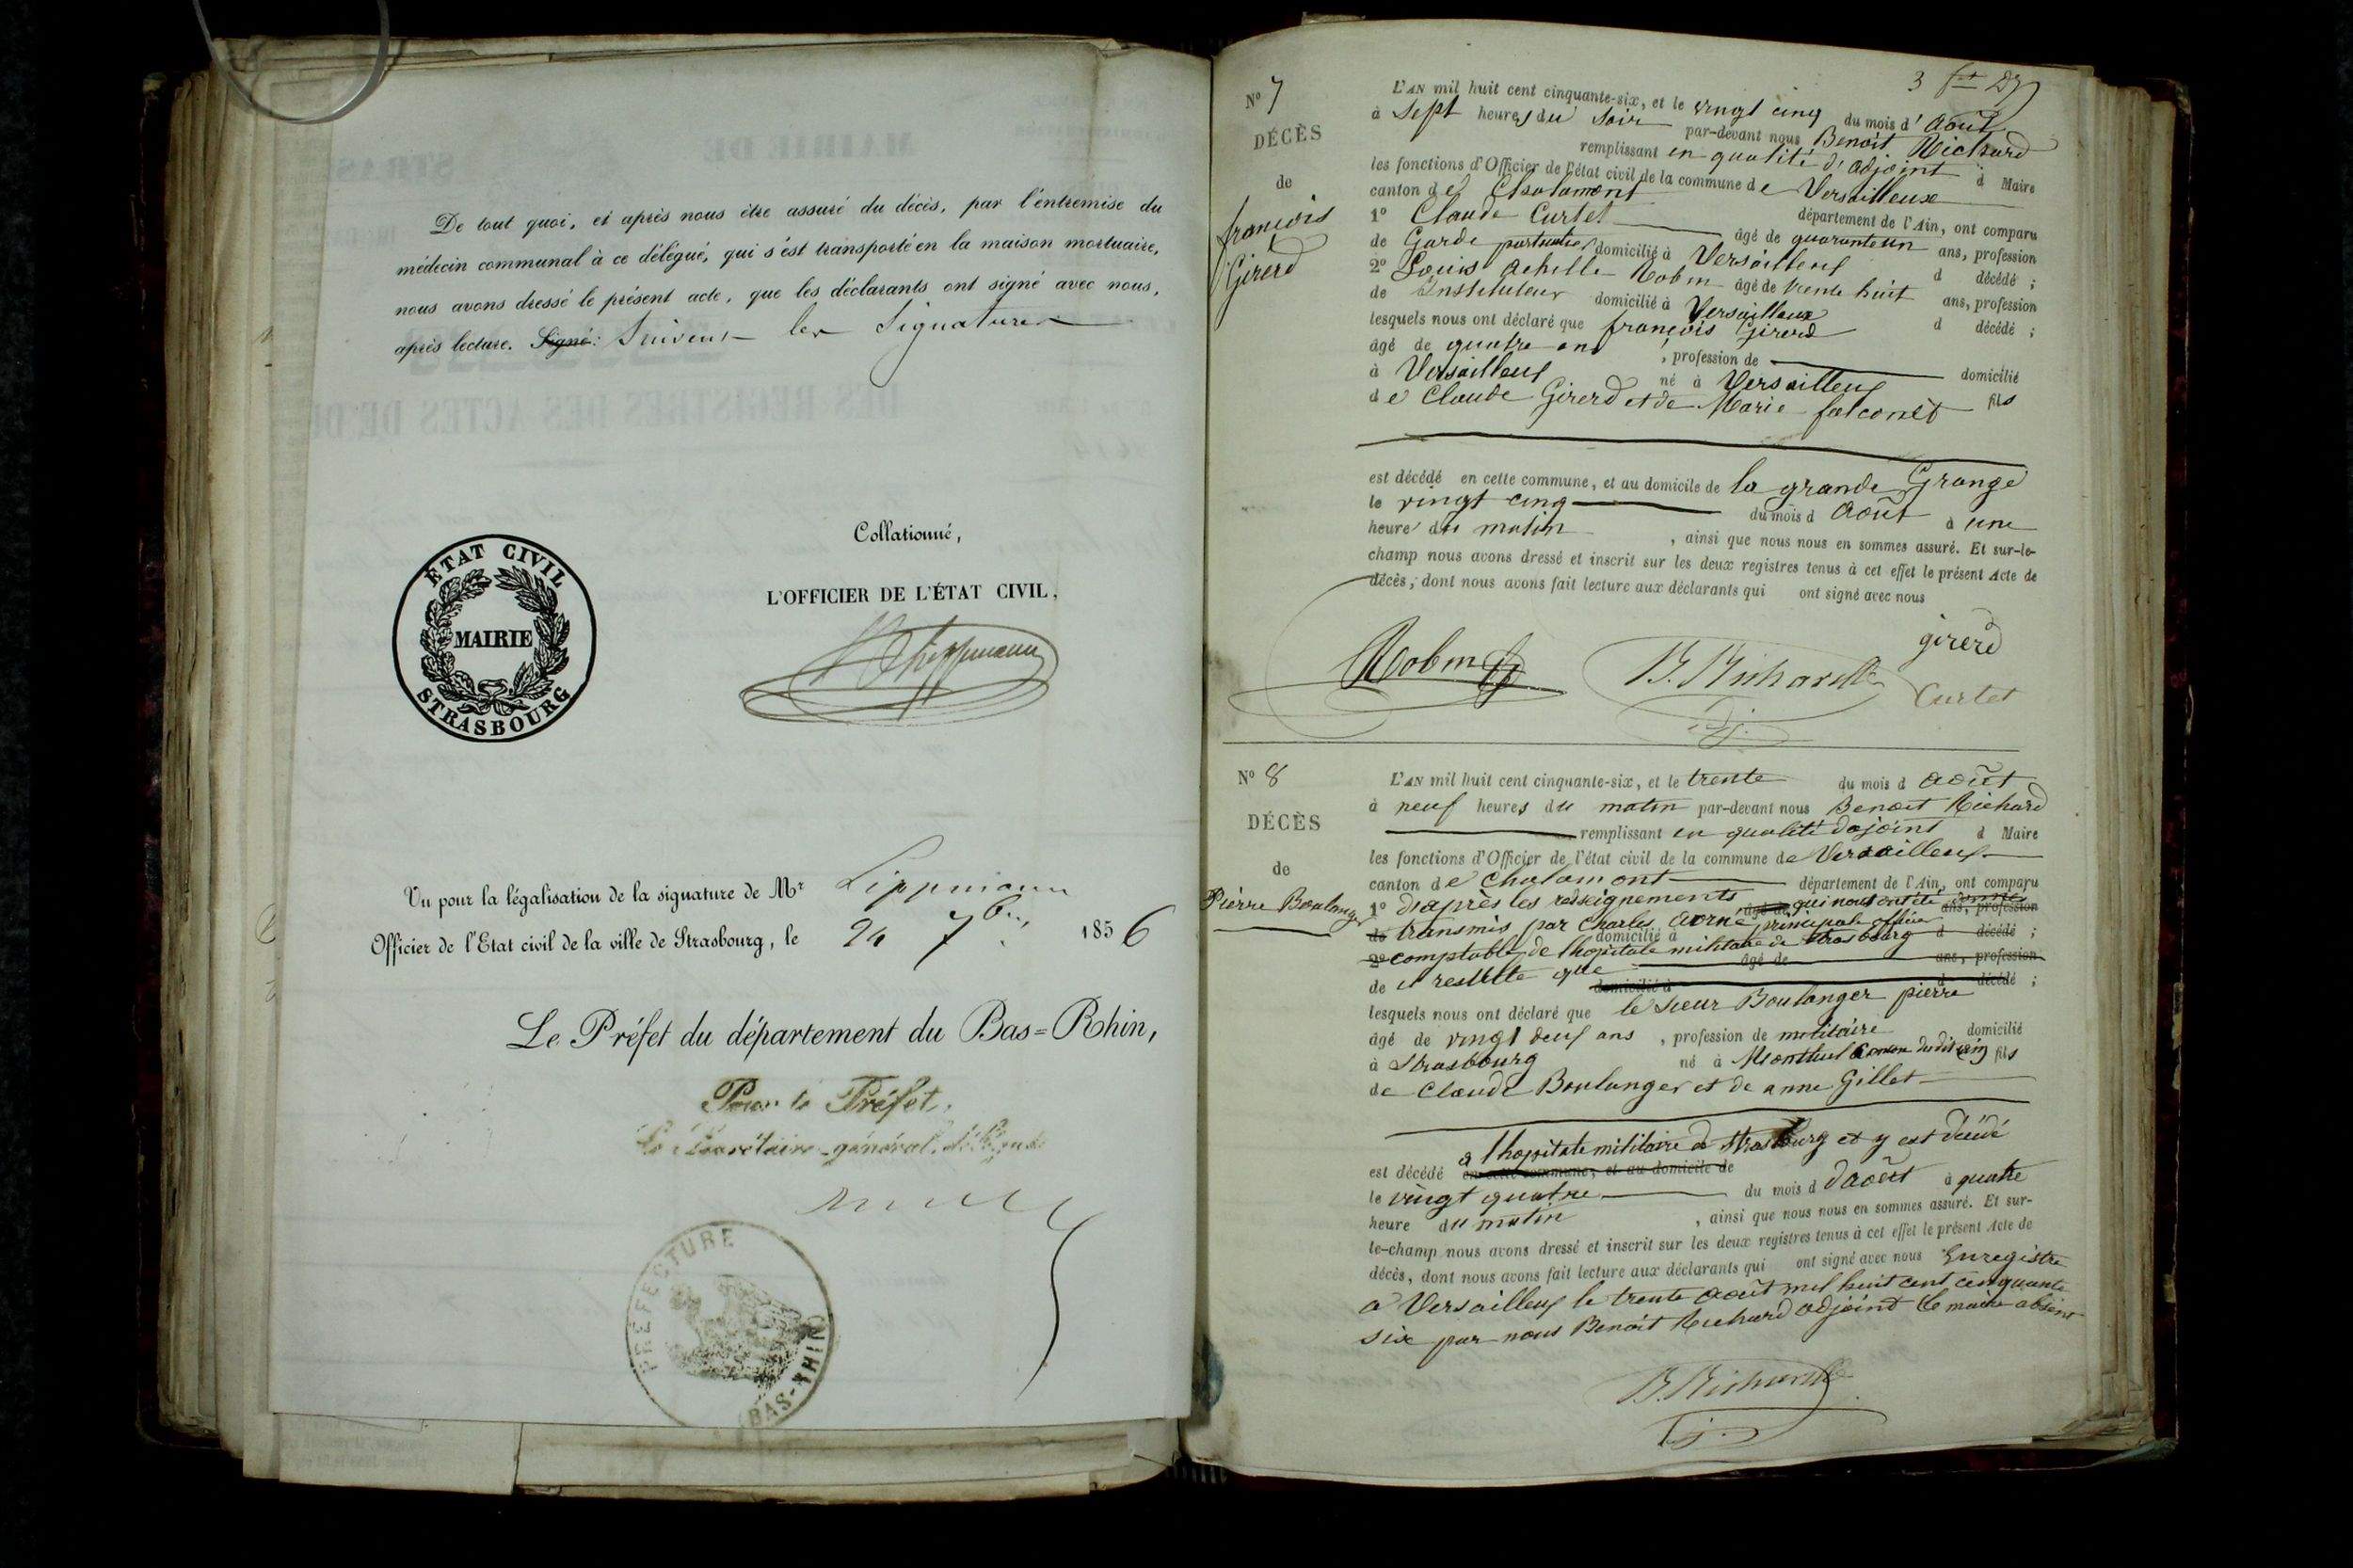 De tout quoi, et après nous être assuré du décès, par l'entremise du
médecin communal à ce délégué, qui s'est transporté en la maison mortuaire,
nous avons dressé le présent acte, que les déclarants ont signé avec nous,
après lecture. Signé: Suivent les Signatures
Collationné,
L'OFFICIER DE L'ÉTAT CIVIL,
ÉTAT CIVIL
MAIRIE
STRASBOURG
Vu pour la légalisation de la signature de Mr Lippmann
Officier de l'Etat civil de la ville de Strasbourg, le 24 7bre 1856
Le Préfet du département du Bas-Rhin,
Pour le Préfet,
Le Secrétaire-général délégué
PREFECTURE
BAS-RHIN
3
No 7
DÉCÈS
de
françois
Girerd
L'AN mil huit cent cinquante-six, et le vingt cinq du mois d'août
à sept heures du soir par-devant nous Benoit Richard
remplissant en qualité d'adjoint d Maire
les fonctions d'Officier de l'état civil de la commune de Versailleux
canton de Chalamont département de l'Ain, ont comparu
1o Claude Curtet âgé de quarante un ans, profession
de Garde domicilié à Versailleux d décédé ;
2o Louis Achille Robin âgé de trente huit ans, profession
de Instituteur domicilié à Versailleux d décédé ;
lesquels nous ont déclaré que françois Girerd
âgé de quatre ans , profession de domicilié
à Versailleux né à Versailleux fils
de Claude Girerd et de Marie falconet
est décédé en cette commune, et au domicile de la grande Grange
le vingt cinq du mois d Août à une
heure du matin , ainsi que nous nous en sommes assuré. Et sur-le-
champ nous avons dressé et inscrit sur les deux registres tenus à cet effet le présent Acte de
décès, dont nous avons fait lecture aux déclarants qui ont signé avec nous
girerd
Robin B. Richard
Curtet
adj.
No 8
DÉCÈS
de
Pierre Boulanger
L'AN mil huit cent cinquante-six, et le trente du mois d août
à neuf heures du matin par-devant nous Benoit Richard
remplissant en qualité dajoint d Maire
les fonctions d'Officier de l'état civil de la commune de Versailleux
canton de Chalamont département de l'Ain, ont comparu
1o d'après les renseignements âgé de qui nous ont été donné ans, profession
de transmis par Charles principale officier
domicilié à d décédé ;
2o comptable de lhopitale militaire de strasbourg
âgé de ans, profession
de il resulte que domicilié à d décédé ;
lesquels nous ont déclaré que le sieur Boulanger pierre
âgé de vingt deux ans , profession de militaire domicilié
à Strasbourg né à Montluel fils
de Claude Boulanger et de anne Gillet
a lhopitale militaire de strasbourg et y est décédé
est décédé en cette commune, et au domicile de
le vingt quatre du mois d daoût à quatre
heure du matin , ainsi que nous nous en sommes assuré. Et sur-
le-champ nous avons dressé et inscrit sur les deux registres tenus à cet effet le présent Acte de
décès, dont nous avons fait lecture aux déclarants qui ont signé avec nous Enregistre
a Versailleux le trente août mil huit cent cinquante
six par nous Benoit Richard adjoint le maire absent
B. Richard